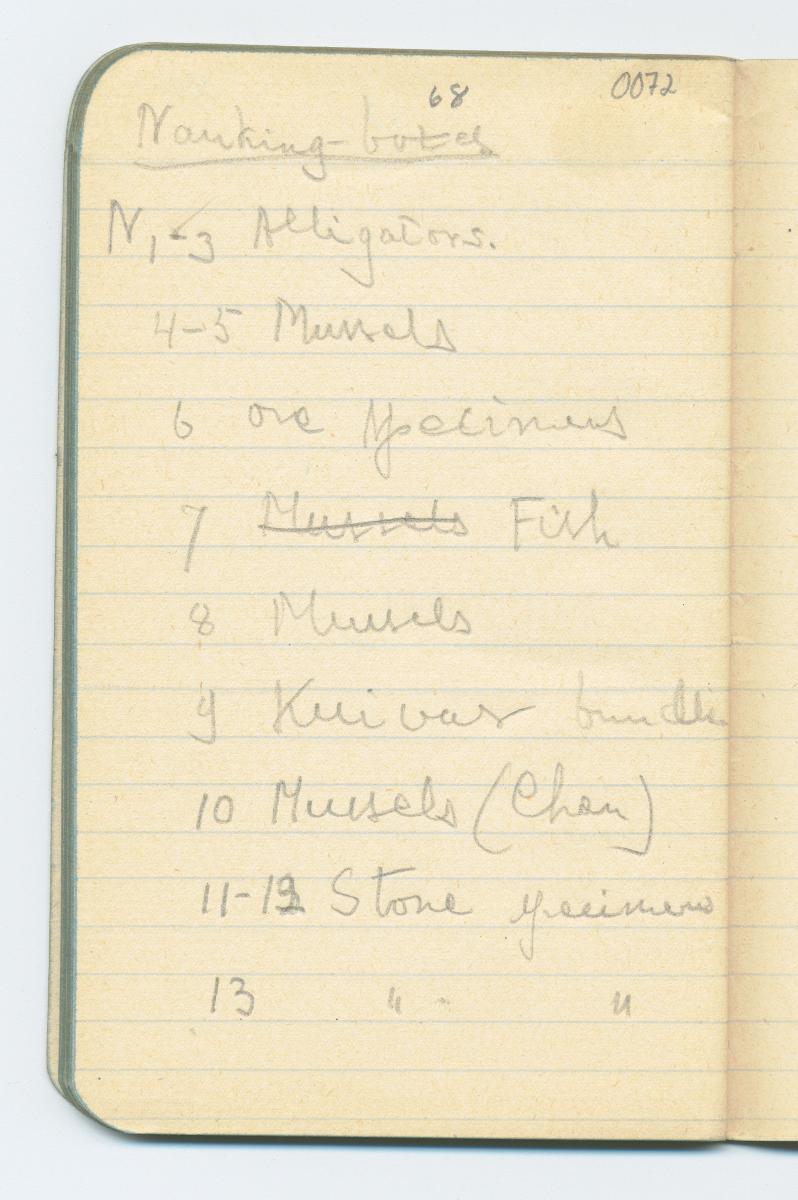 68 0072
Nanking-boxes
N 1-3 Alligators.
4-5 Mussels
6 ore specimens
7 Mussels Fish
8 Mussels
9
10 Mussels (Chan)
11-12 Stone specimens
13 " - "